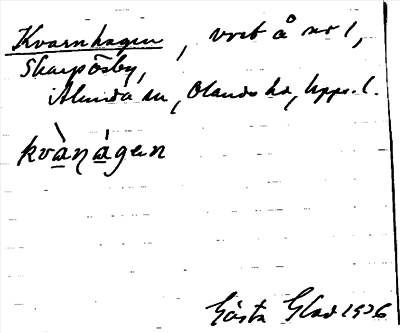 Kvarnhagen, vret å nr 1,
Skarpösby,
Alunda sn, Olands hd, Upps. l.
kvànágen
Gösta Glad 1926